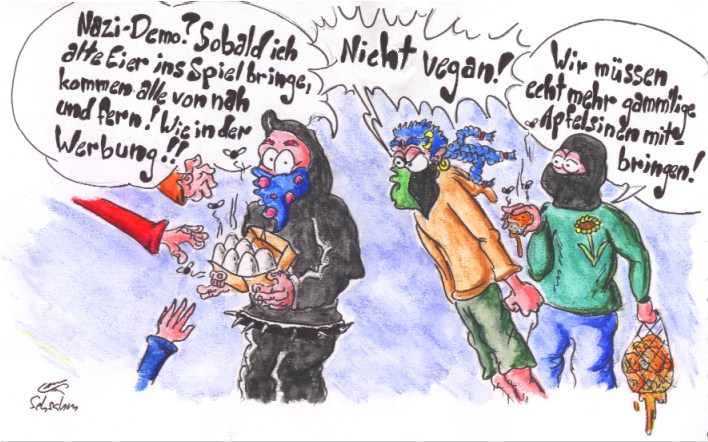 Nazi-Demo? Sobald ich
alte Eier ins Spiel bringe,
kommen alle von nah
und fern! Wie in der
Werbung!!
Nicht vegan!
Wir müssen
echt mehr gammlige
Apfelsinen mit-
bringen!